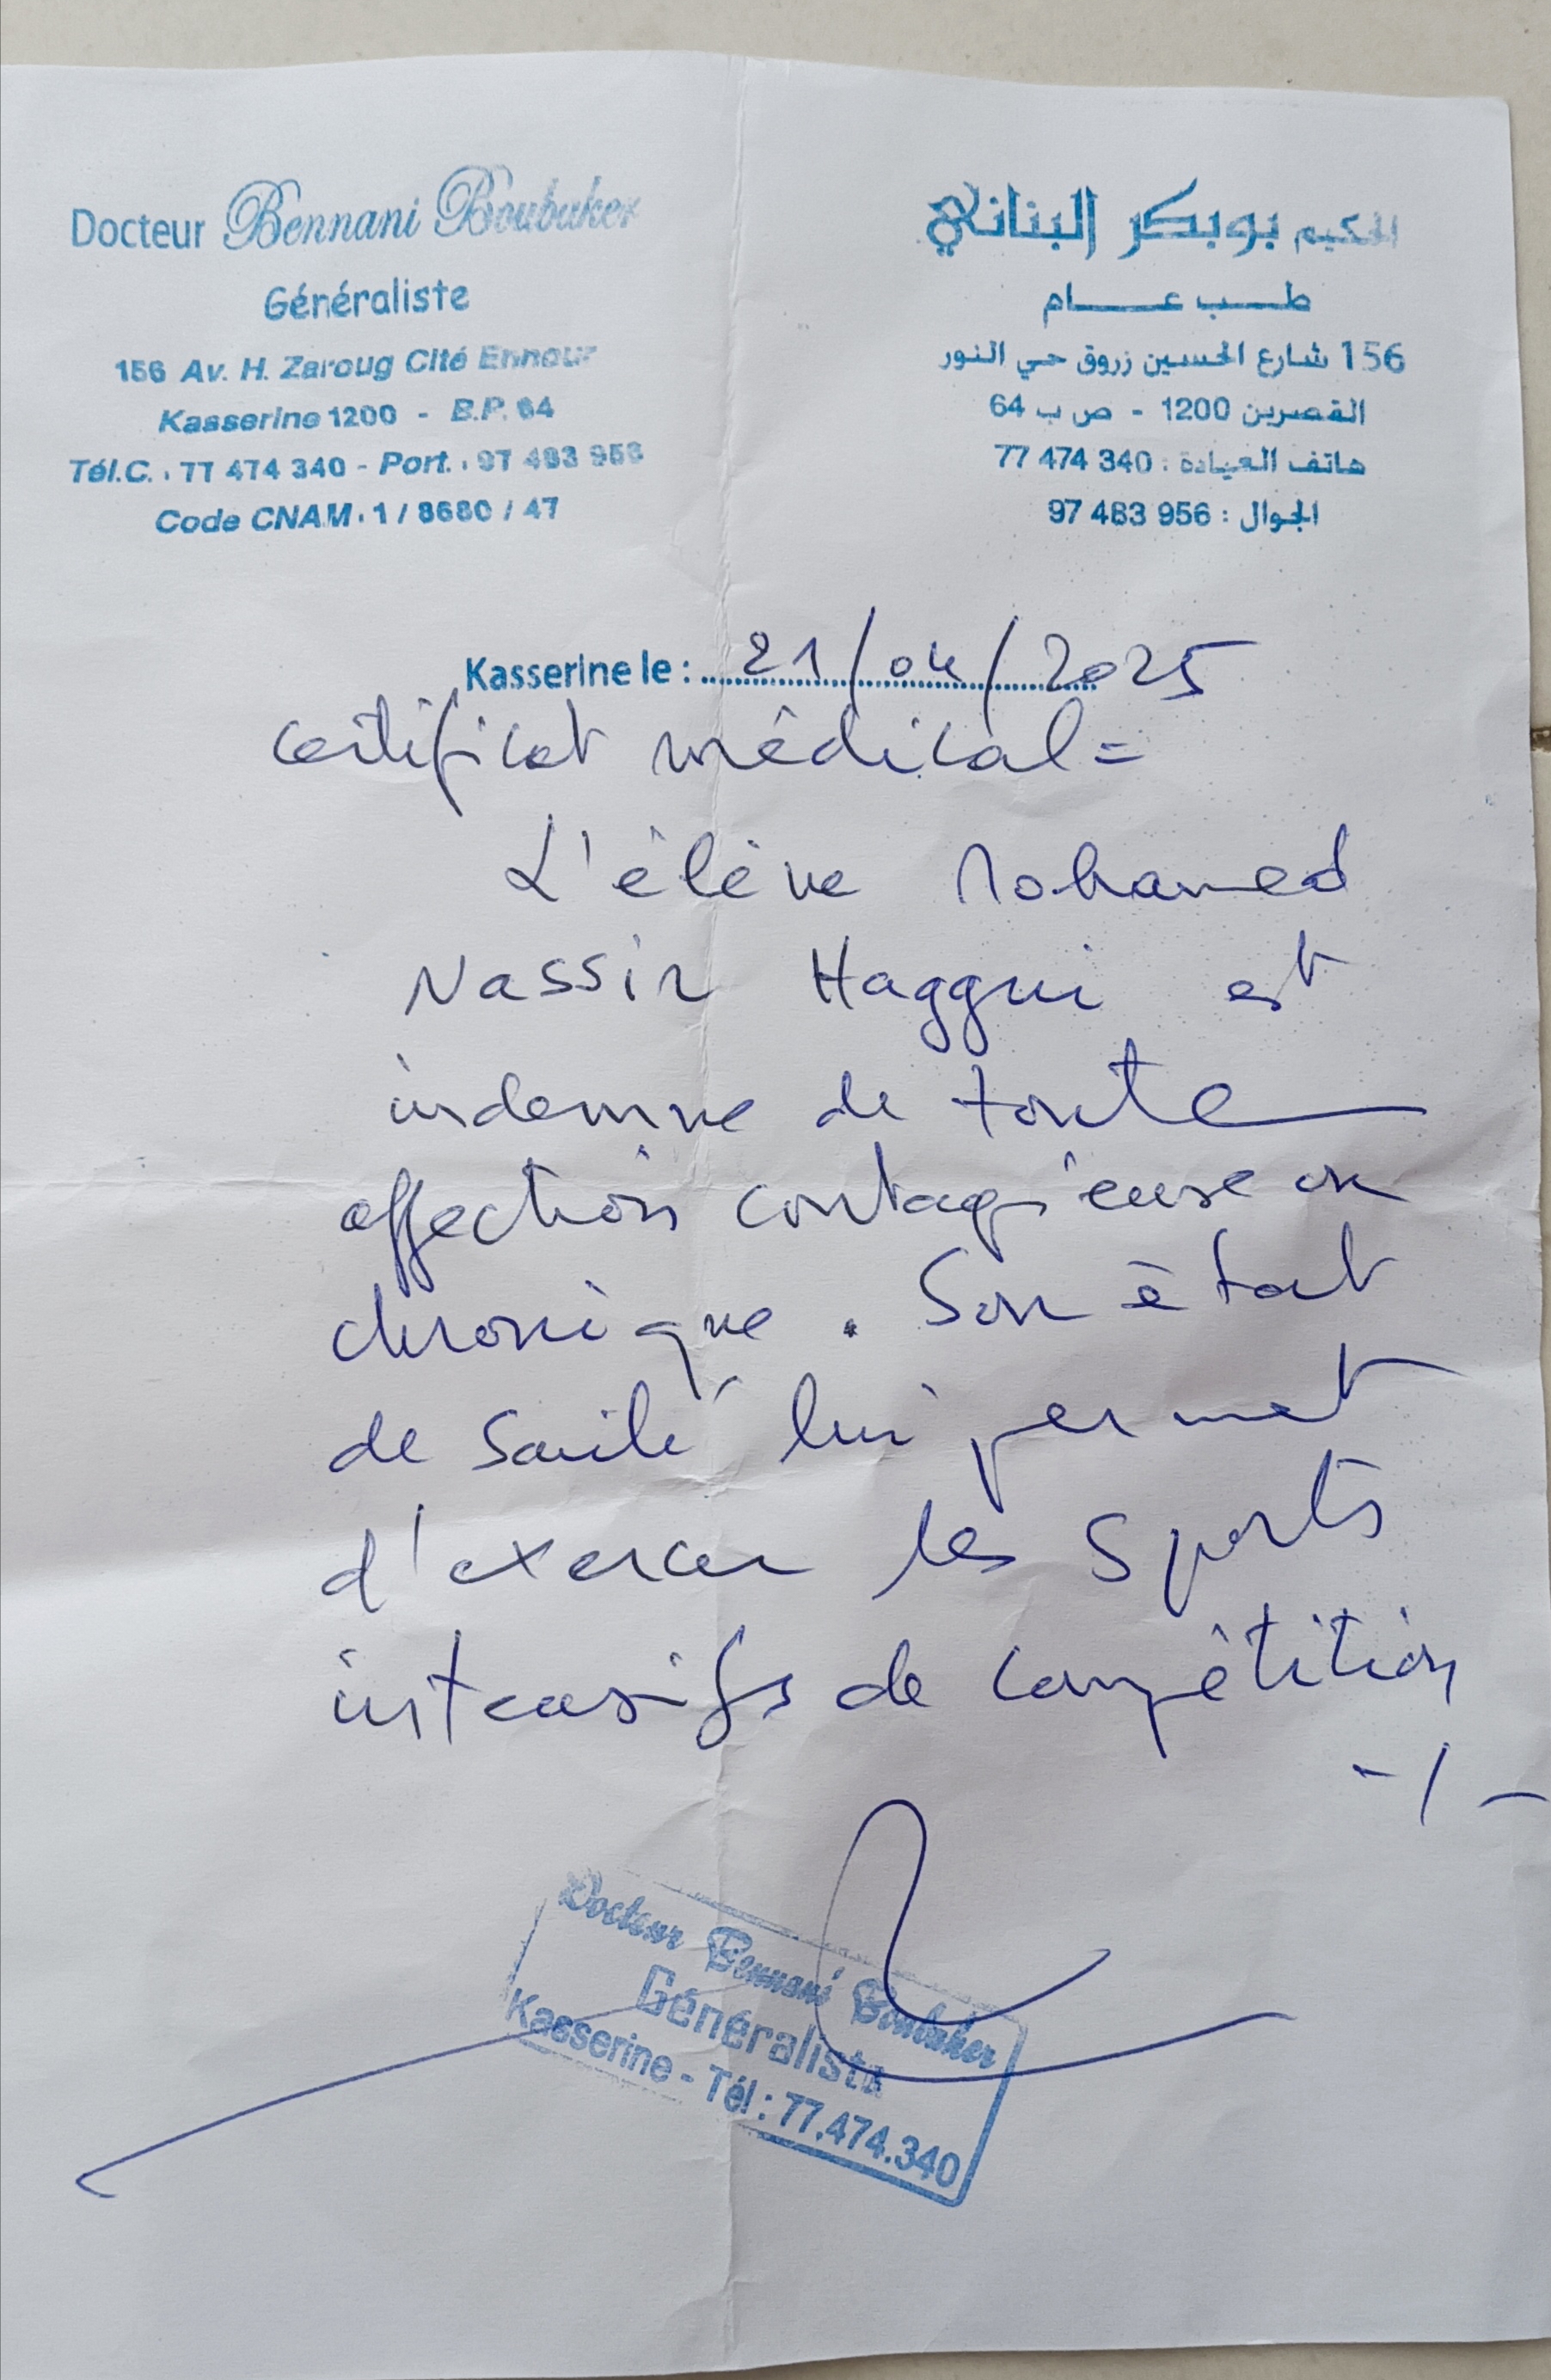 Docteur Bennani Boubaker
Généraliste
156 Av. H. Zaroug Cité Ennour
Kasserine 1200 - B.P. 64
Tél.C. : 77 474 340 - Port. : 97 483 956
Code CNAM : 1 / 8680 / 47
الحكيم بوبكر البناني
طب عام
156 شارع الحسين زروق حي النور
القصرين 1200 - ص ب 64
هاتف العيادة : 340 474 77
الجوال : 956 483 97
Kasserine le : 21/04/2025
Certificat médical =
L'élève Mohamed
Nassir Haggui est
indemne de toute
affection contagieuse ou
chronique. Son état
de santé lui permet
d'exercer les sports
intensifs de compétition
-/-
Docteur Bennani Boubaker
Généraliste
Kasserine - Tél : 77.474.340